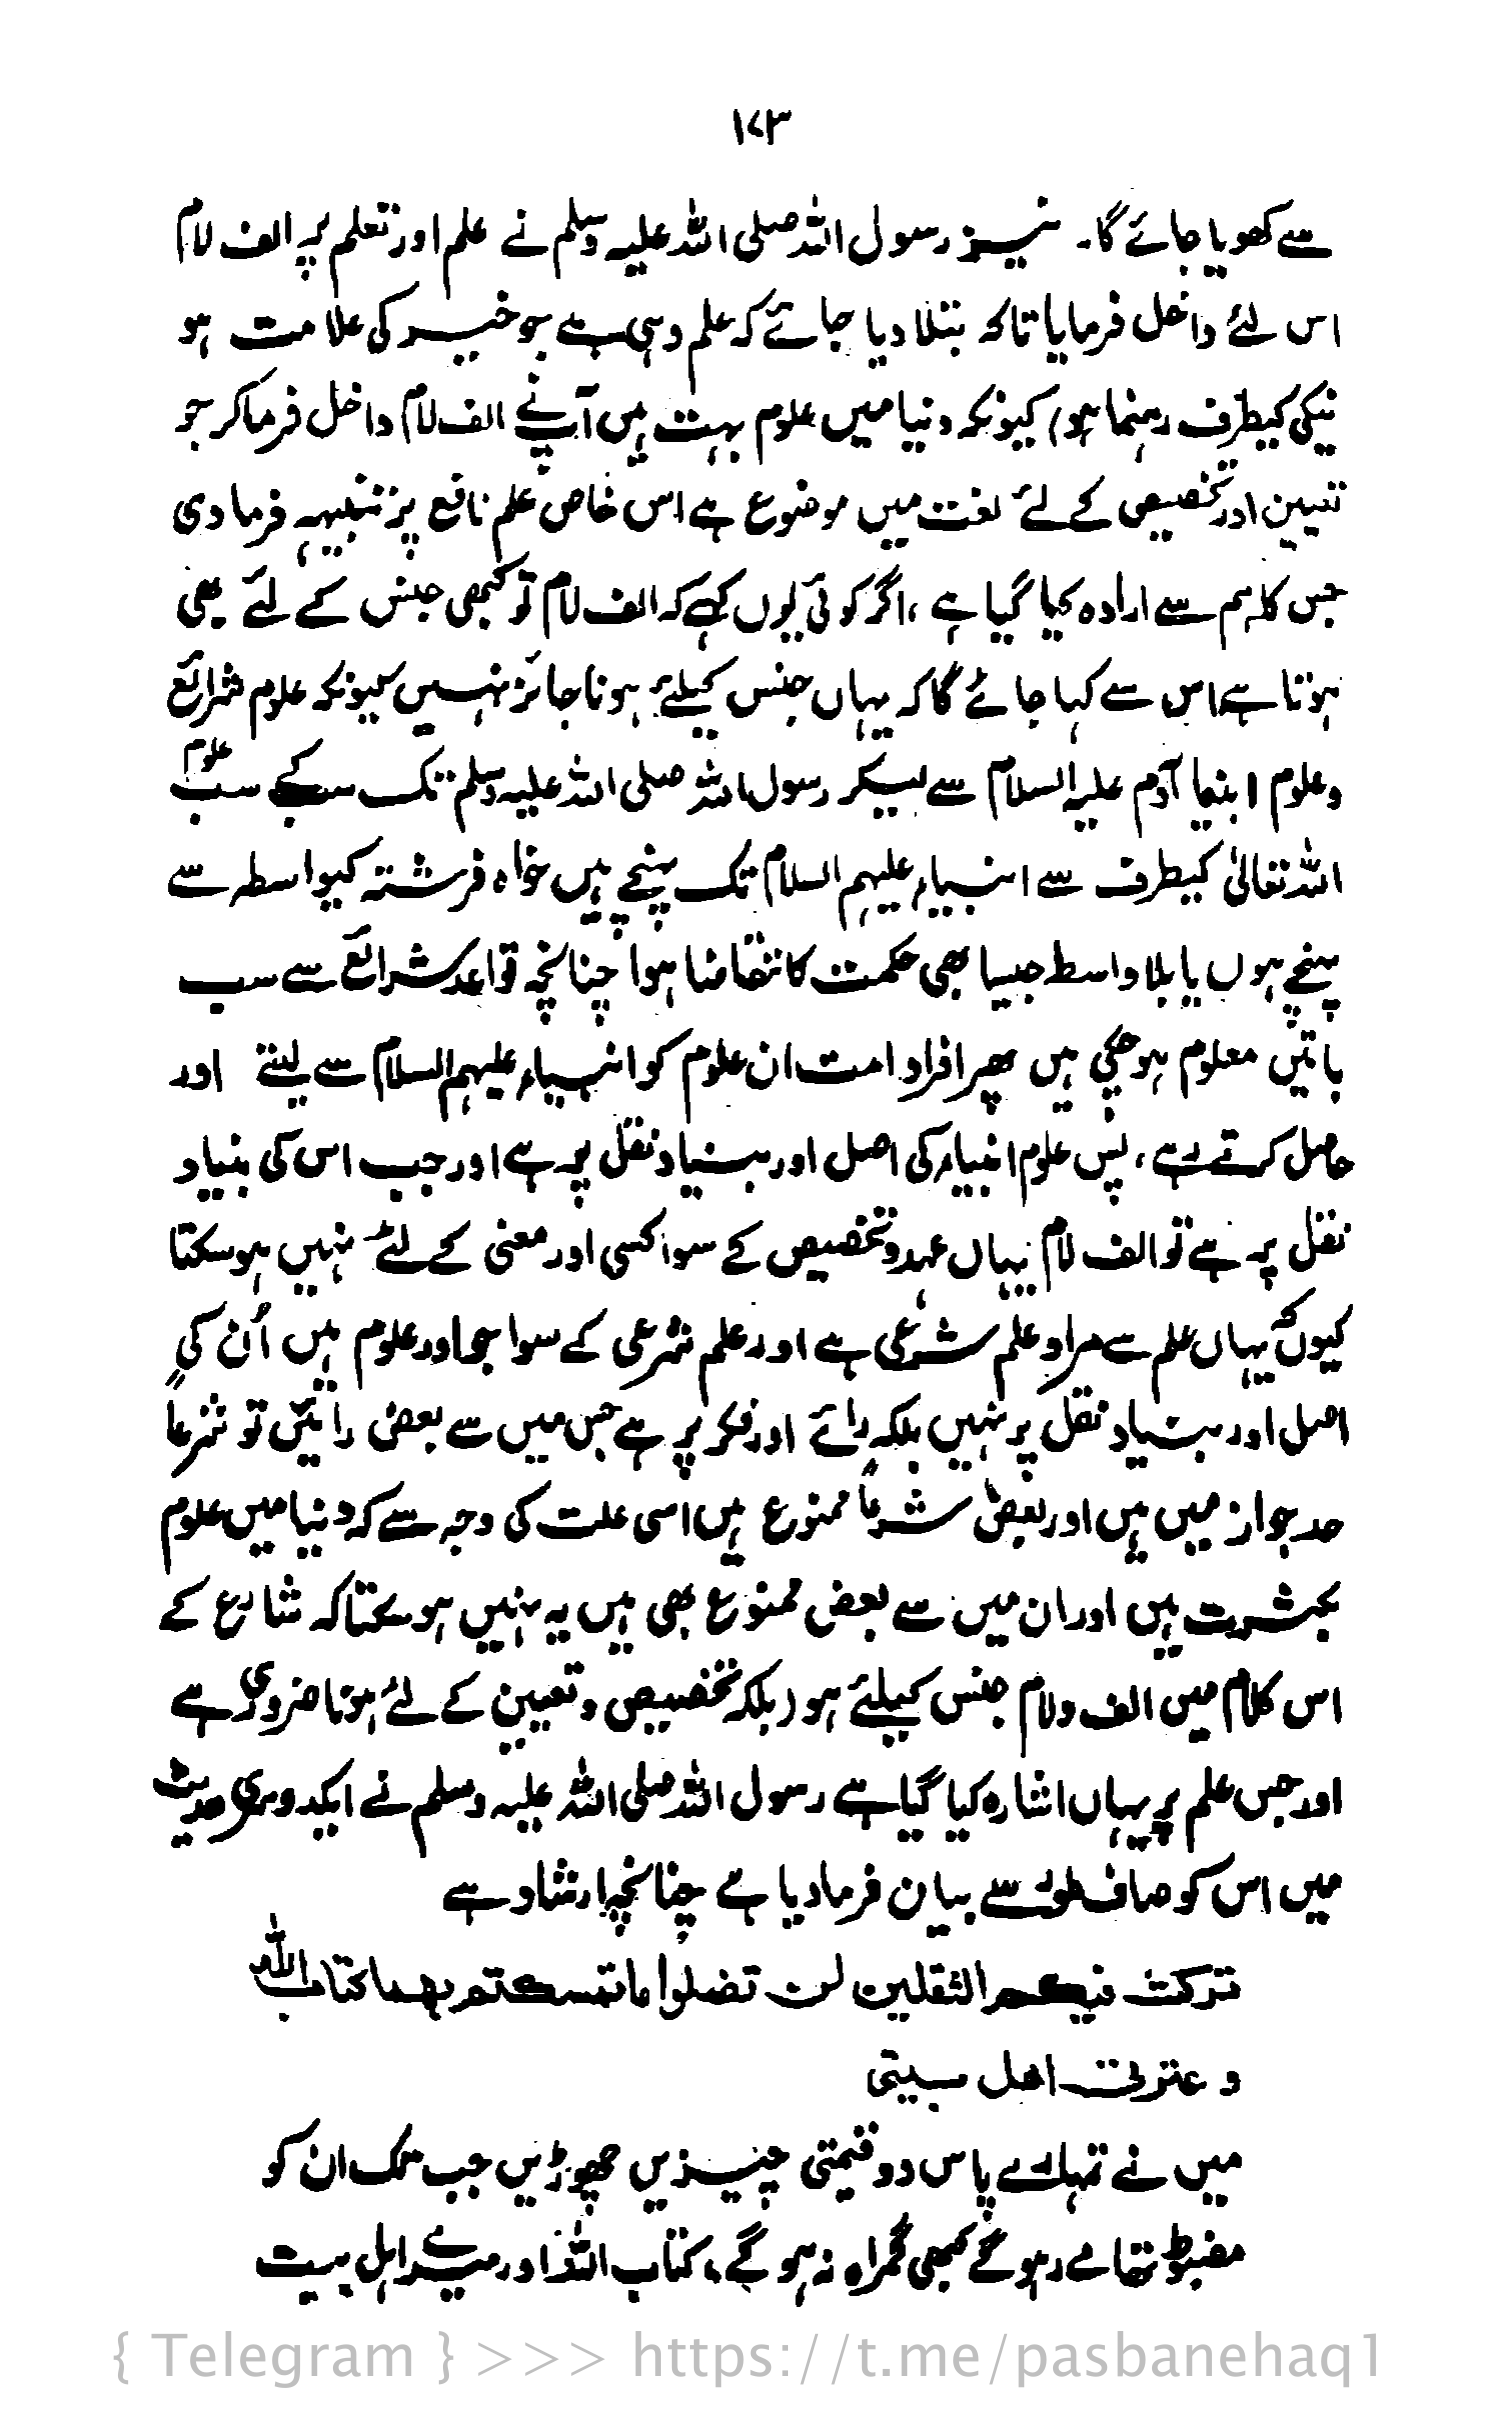 ۱۷۳
سے کھویا جائے گا۔ نیز رسول اللہ صلی اللہ علیہ وسلم نے علم اور تعلم پر الف لام
اس لئے داخل فرمایا تاکہ بتلا دیا جائے کہ علم وہی ہے جو خیر کی علامت ہو
نیکی کیطرف رہنما ہو، کیونکہ دنیا میں علوم بہت ہیں آپنے الف لام داخل فرما کر جو
تعیین اور تخصیص کے لئے لغت میں موضوع ہے اس خاص علم نافع پر تنبیہہ فرما دی
جس کا اسم سے ارادہ کیا گیا ہے، اگر کوئی یوں کہے کہ الف لام تو کبھی جنس کے لئے بھی
ہوتا ہے اس سے کہا جائے گا کہ یہاں جنس کیلئے ہونا جائز نہیں کیونکہ علوم شرائع
وعلوم انبیا آدم علیہ السلام سے لیکر رسول اللہ صلی اللہ علیہ وسلم تک سب کے سب علوم
اللہ تعالیٰ کیطرف سے انبیاء علیہم السلام تک پہنچے ہیں خواہ فرشتہ کیواسطہ سے
پہنچے ہوں یا بلا واسطہ جیسا بھی حکمت کا تقاضا ہوا چنانچہ قواعد شرائع سے سب
باتیں معلوم ہو چکی ہیں پھر افراد امت ان علوم کو انبیاء علیہم السلام سے لیتے اور
حاصل کرتے رہے، پس علوم انبیاء کی اصل اور بنیاد نقل پر ہے اور جب اس کی بنیاد
نقل پر ہے تو الف لام یہاں عہد و تخصیص کے سوا کسی اور معنی کے لئے نہیں ہو سکتا
کیونکہ یہاں علم سے مراد علم شرعی ہے اور علم شرعی کے سوا جو اور علوم ہیں اُن کی
اصل اور بنیاد نقل پر نہیں بلکہ رائے اور فکر پر ہے جس میں سے بعض رائیں تو شرعاً
حد جواز میں ہیں اور بعض شرعاً ممنوع ہیں اسی علت کی وجہ سے کہ دنیا میں علوم
بکثرت ہیں اور ان میں سے بعض ممنوع بھی ہیں یہ نہیں ہو سکتا کہ شارع کے
اس کلام میں الف ولام جنس کیلئے ہو (بلکہ تخصیص و تعیین کے لئے ہونا ضروری ہے
اور جس علم پر یہاں اشارہ کیا گیا ہے رسول اللہ صلی اللہ علیہ وسلم نے ایک دوسری حدیث
میں اس کو صاف طور سے بیان فرما دیا ہے چنانچہ ارشاد ہے
تركت فيكم الثقلين لن تضلوا ما تمسكتم بهما كتاب الله
و عترتي اهل بيتي
میں نے تمہارے پاس دو قیمتی چیزیں چھوڑیں جب تک ان کو
مضبوط تھامے رہو گے کبھی گمراہ نہ ہو گے، کتاب اللہ اور میرے اہل بیت
{ Telegram } >>> https://t.me/pasbanehaq1